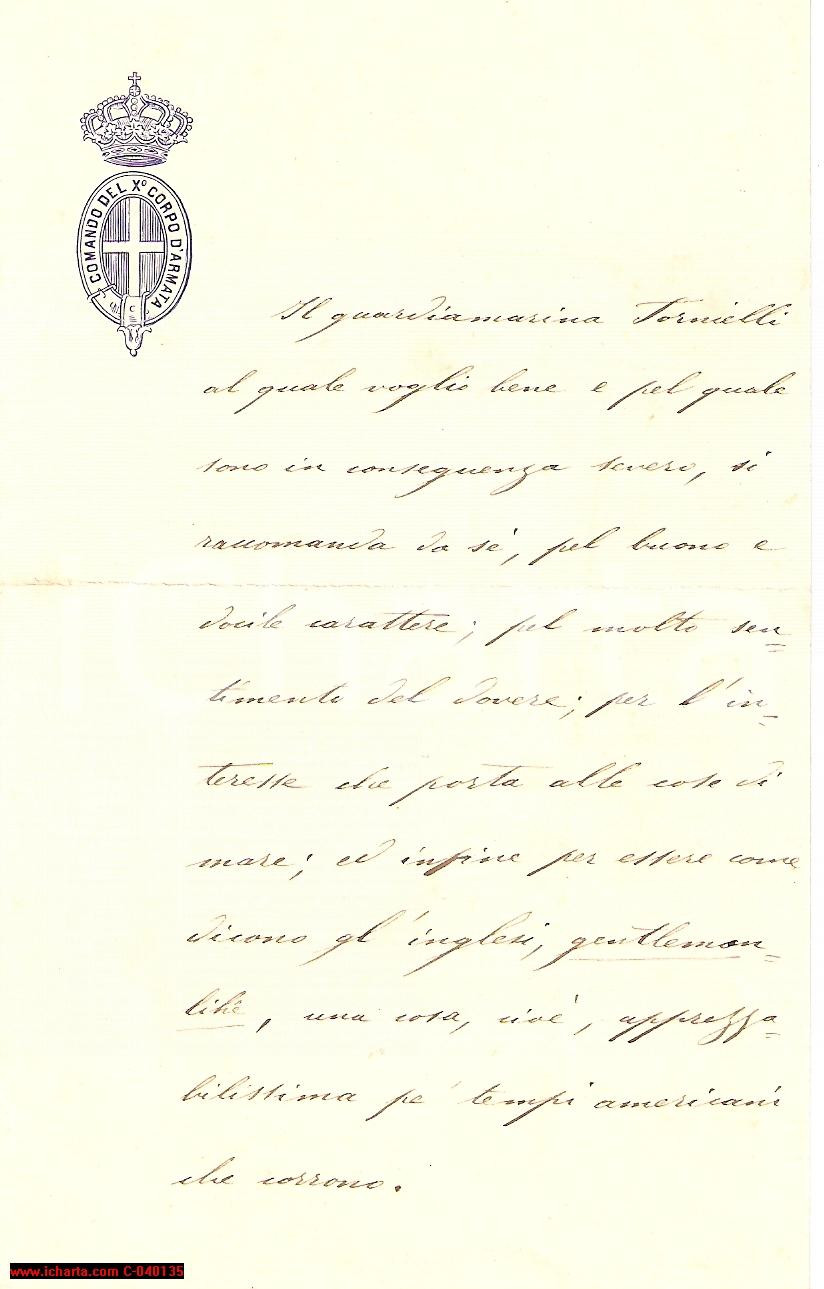 COMANDO DEL Xº CORPO D'ARMATA
Il guardiamarina Tornielli
al quale voglio bene e pel quale
sono in conseguenza severo, si
raccomanda da sè, pel buono e
docile carattere; pel molto sen=
timento del dovere; per l'in=
teresse che porta alle cose di
mare; ed infine per essere come
dicono gl'inglesi, gentleman=
like, una cosa, cioè, apprezza=
bilissima pe' tempi americani
che corrono.
www.icharta.com C-040135